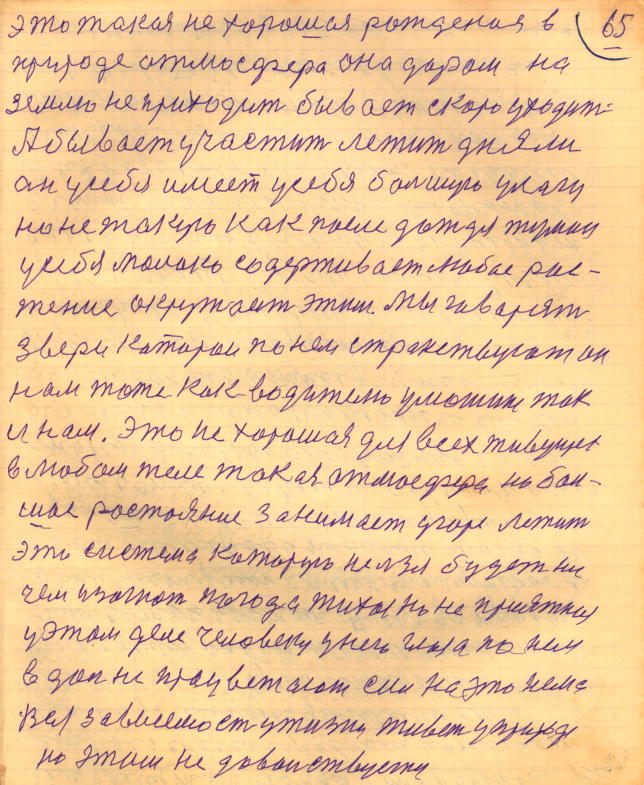 это такая не хорошая рождения в 65
природе атмосфера она даром на
землю не приходит бывает скоро уходит
А бывает участит летит дня ли
он усебя имеет усебя большую улагу
но не такую как после дождя туман
усебя молоко содерживает любое рас-
тение окружает этим. Мы говорят
звери которои по нем странствуют он
нам тоже как водителю умошине так
и нам. Это не хорошая для всех живущих
в любом теле такая атмосфера но бол-
шое ростояние занимает угоре летит
это система которую нелзя будет ни
чем изогнат погода тихая но не приятная
уэтом деле человеку унего глаза по нем
в дол не процветают сил на это нема
Вся зависемост ужизни живет уприроде
но этим не довольствуется